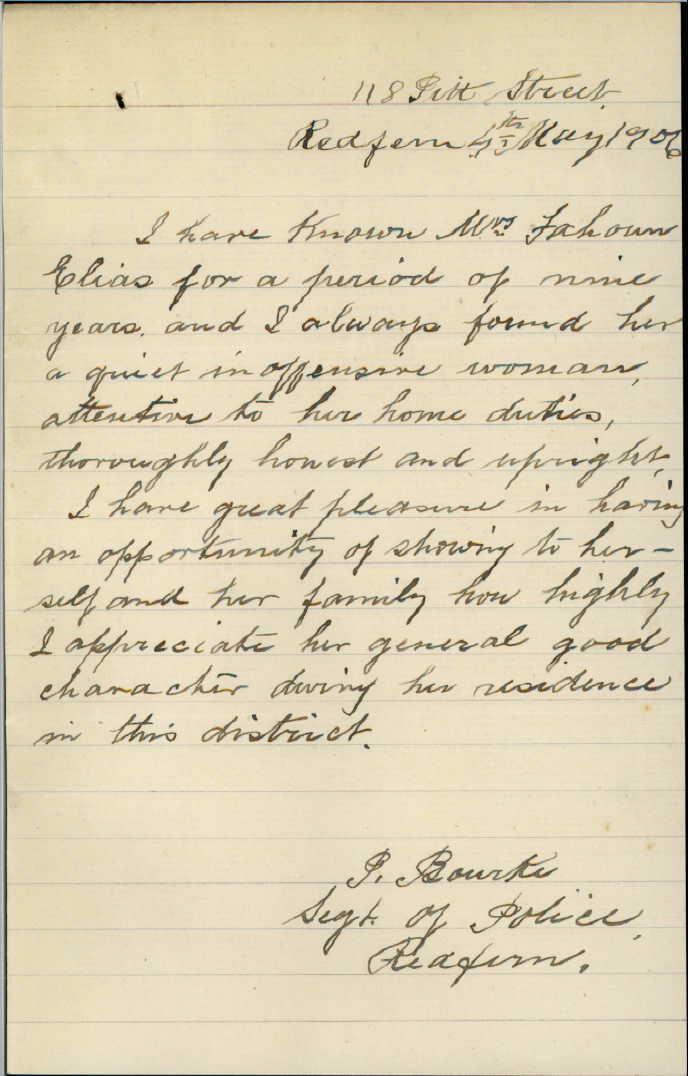 118 Pitt Street
Redfern 4th May 1906
I have Known Mrs Fahoum
Elias for a period of nine
years. and I always found her
a quiet inoffensive woman,
attentive to her home duties,
thoroughly honest and upright.
I have great pleasure in having
an opportunity of showing to her-
self and her family how highly
I appreciate her general good
character during her residence
in this district.
P. Bourke
Segt. of Police,
Redfern.